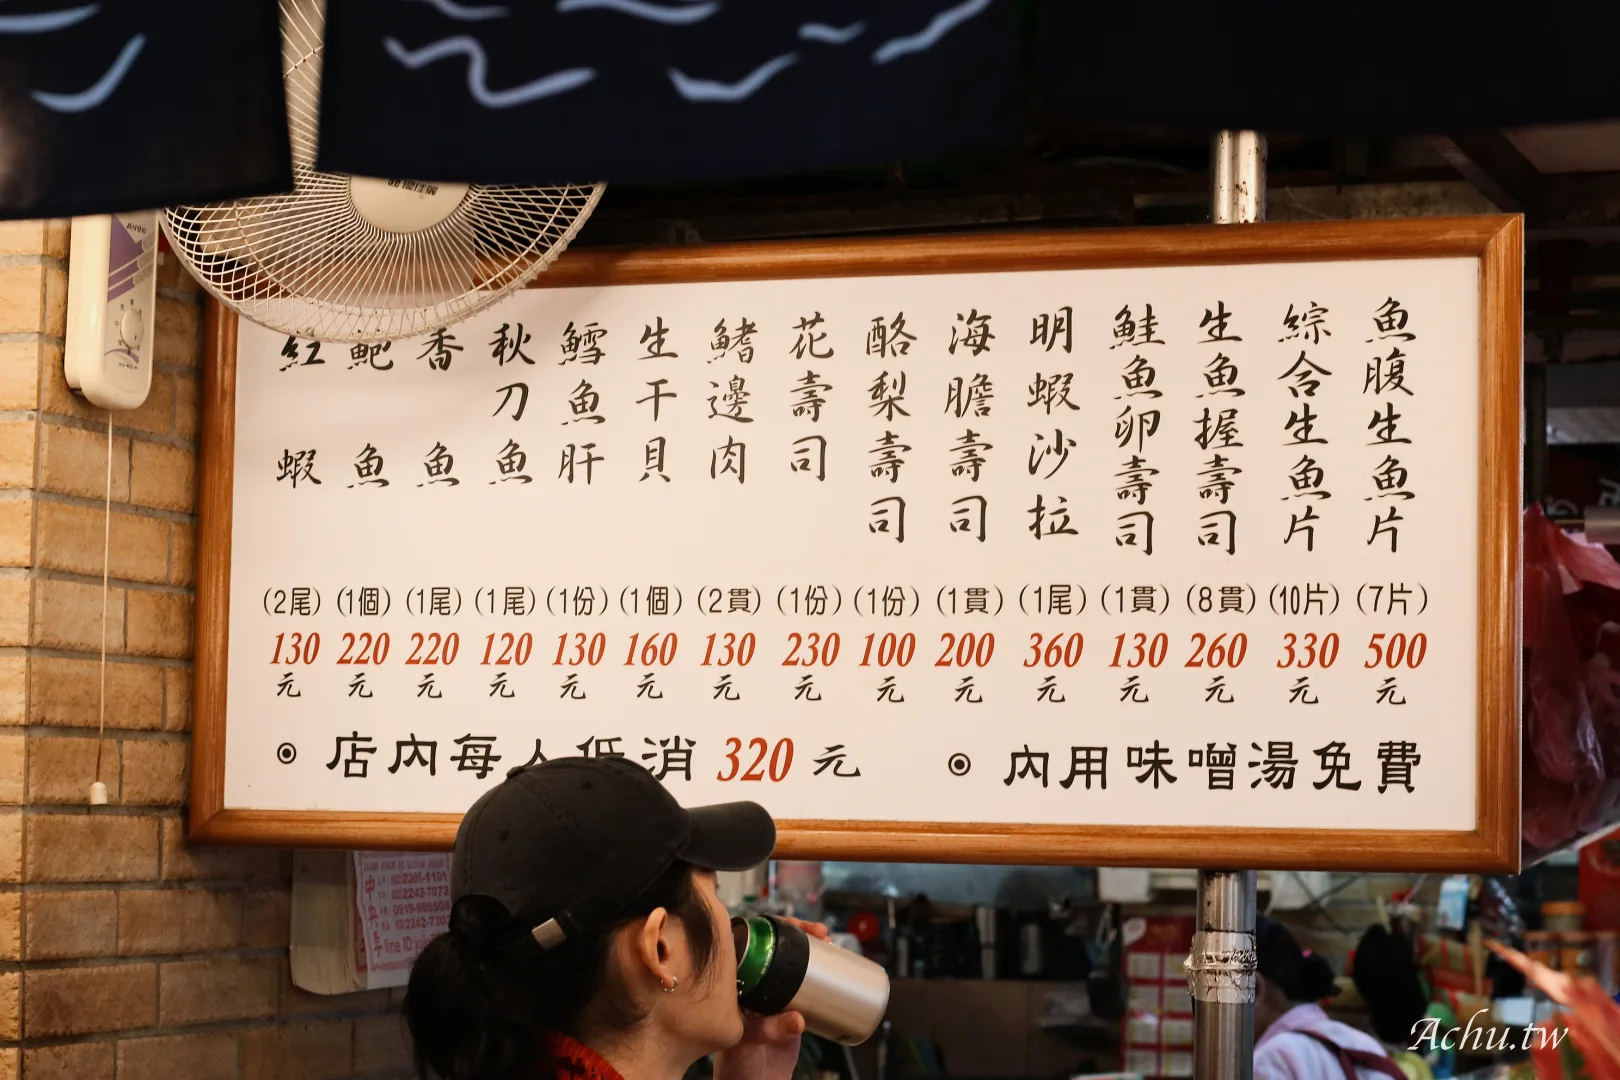 魚腹生魚片 (7片) 500元
綜合生魚片 (10片) 330元
生魚握壽司 (8貫) 260元
鮭魚卵壽司 (1貫) 130元
明蝦沙拉 (1尾) 360元
海膽壽司 (1貫) 200元
酪梨壽司 (1份) 100元
花壽司 (1份) 230元
鰭邊肉 (2貫) 130元
生干貝 (1個) 160元
鱈魚肝 (1份) 130元
秋刀魚 (1尾) 120元
香魚 (1尾) 220元
鮑魚 (1個) 220元
紅蝦 (2尾) 130元
◉ 店內每人低消 320 元
◉ 內用味噌湯免費
Achu.tw